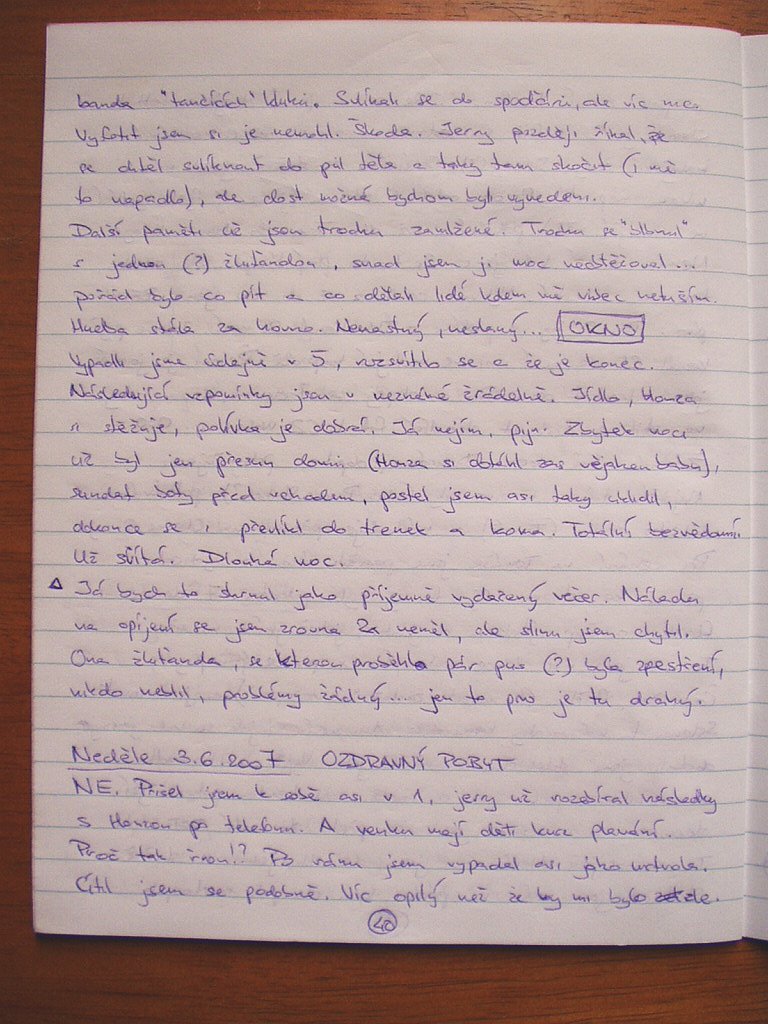 banda "tančících" kluků. Svlíkali se do spodčárů, ale víc nic.
Vyfotit jsem si je nemohl. Škoda. Jerry později říkal, že
se chtěl svlíknout do půl těla a taky tam skočit (i mě
to napadlo), ale dost možná bychom byli vyvedeni.
Další paměti už jsou trochu zamlžené. Trochu se "blbnul"
s jednou (?) žluťandou, snad jsem ji moc neobtěžoval...
pořád bylo co pít a co dělali lidé kolem mě vůbec netuším.
Hudba stála za hovno. Nenastný, neslaný... OKNO
Vypadli jsme údajně v 5, rozsvítilo se a že je konec.
Následující vzpomínky jsou v neznámé žrádelně. Jídlo, Honza
si stěžuje, polívka je dobrá. Já nejím, piju. Zbytek noci
už byl jen přesun domů (Honza si obtáhl zas nějakou babu),
sundat boty před vchodem, postel jsem asi taky uklidil,
dokonce se i převlíkl do trenek a koma. Totální bezvědomí.
Už svítá. Dlouhá noc.
Δ Já bych to shrnul jako příjemně vydařený večer. Náladu
na opíjení se jsem zrovna 2x neměl, ale slinu jsem chytl.
Ona žluťanda, se kterou proběhlo pár pus (?) byla zpestření,
nikdo neblil, problémy žádný... jen to pivo je tu drahý.
Neděle 3.6.2007 OZDRAVNÝ POBYT
NE. Přišel jsem k sobě asi v 1, jerry už rozebíral následky
s Honzou po telefonu. A venku mají děti kurz plavání.
Proč tak řvou!? Po ránu jsem vypadal asi jako mrtvola.
Cítil jsem se podobně. Víc opilý než že by mi bylo zle.
40